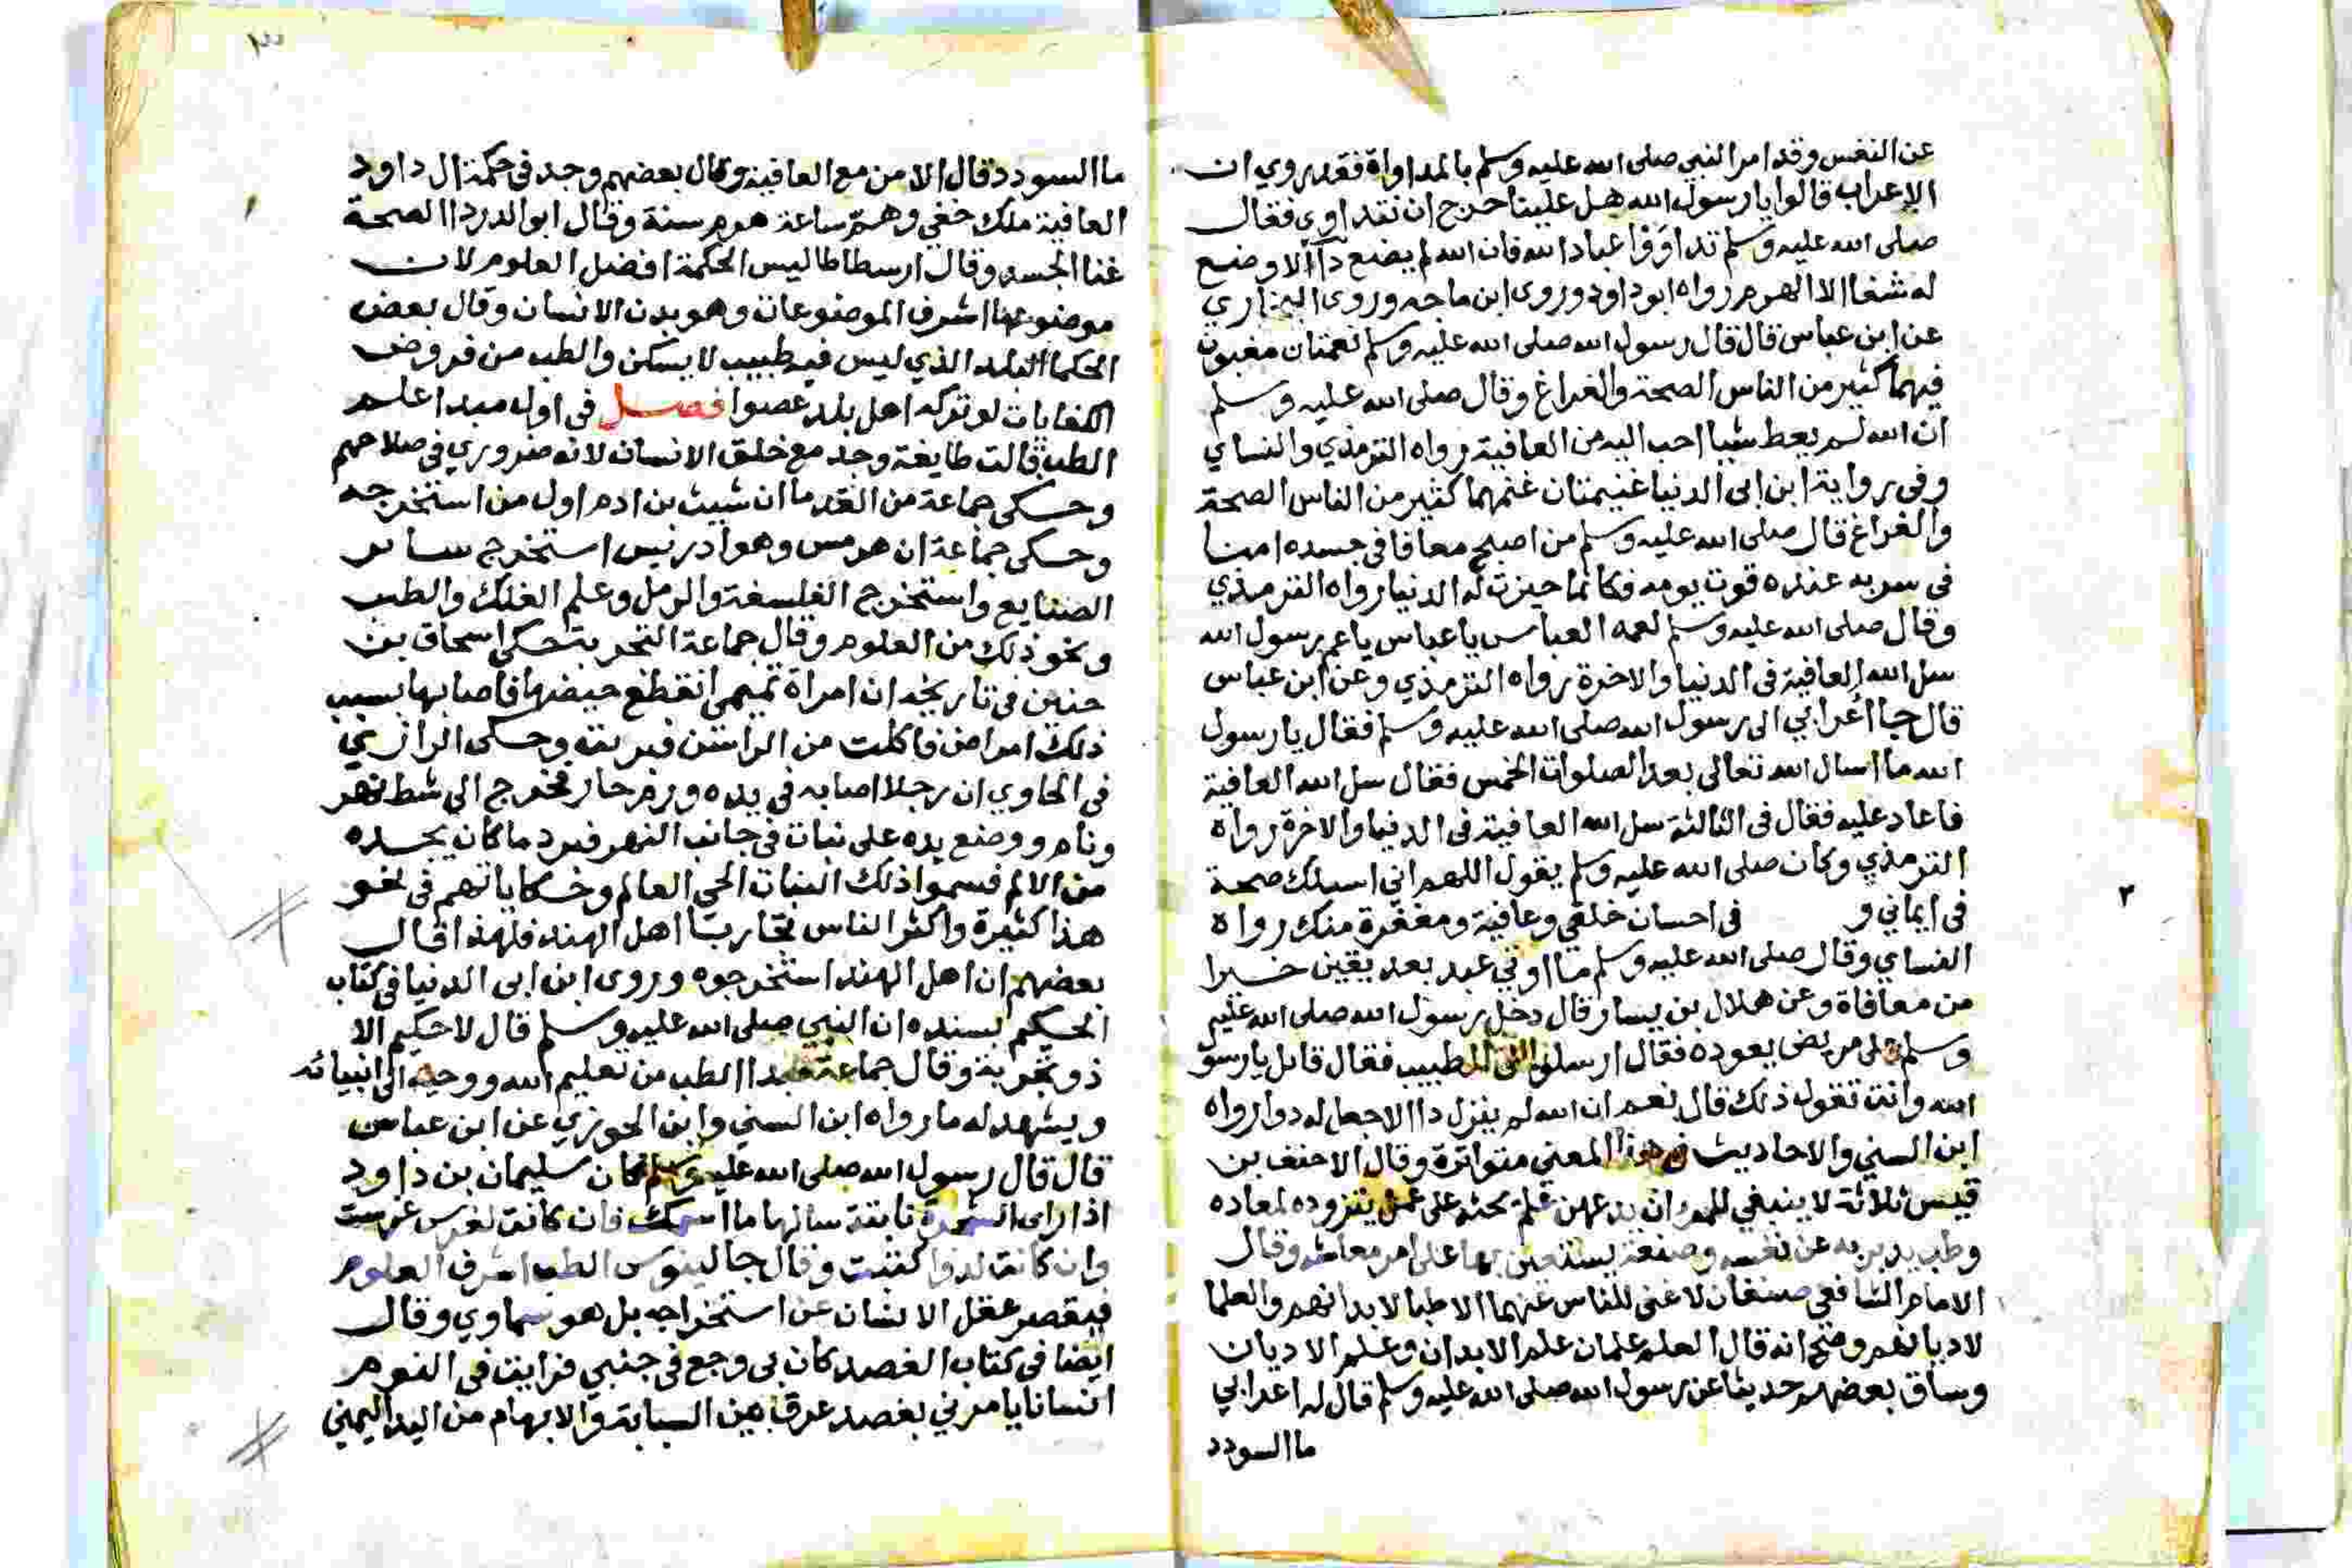 عن النفس وقد امر النبي صلى الله عليه وسلم بالمداواة فقد روي ان
الاعراب قالوا يا رسول الله هل علينا حرج ان نتداوى فقال
صلى الله عليه وسلم تداوَوْا عباد الله فان الله لم يضع دآ الا وضع
له شفا الا الهرم رواه ابو داود وروى ابن ماجه وروى البخاري
عن ابن عباس قال قال رسول الله صلى الله عليه وسلم نعمتان مغبون
فيهما كثير من الناس الصحة والفراغ وقال صلى الله عليه وسلم
ان الله لم يعط شيا احب اليه من العافية رواه الترمذي والنساي
وفي رواية ابن ابى الدنيا غنيمتان غنمهما كثير من الناس الصحة
والفراغ قال صلى الله عليه وسلم من اصبح معافا في جسده امنا
في سربه عنده قوت يومه فكانما حيزت له الدنيا رواه الترمذي
وقال صلى الله عليه وسلم لعمه العباس يا عباس يا عم رسول الله
سل الله العافية في الدنيا والاخرة رواه الترمذي وعن ابن عباس
قال جا اعرابي الى رسول الله صلى الله عليه وسلم فقال يا رسول
الله ما اسال الله تعالى بعد الصلوات الخمس فقال سل الله العافية
فاعاد عليه فقال في الثالثة سل الله العافية في الدنيا والاخرة رواه
الترمذي وكان صلى الله عليه وسلم يقول اللهم اني اسيلك صحة
في ايماني و في احسان خلقي وعافية ومغفرة منك رواه
النساي وقال صلى الله عليه وسلم ما اوتي عبد بعد يقين خيرا
من معافاة وعن هلال بن يسار قال دخل رسول الله صلى الله عليه
وسلم على مريض يعوده فقال ارسلوا الى الطبيب فقال قايل يا رسول
الله وانت تقول ذلك قال نعم ان الله لم ينزل دا الا جعل له دوا رواه
ابن السني والاحاديث في هذا المعني متواترة وقال الاحنف بن
قيس ثلاثة لا ينبغي للمرء ان يدعهن علم يحثه على عمل يتزوده لمعاده
وطب يدبر به عن نفسه وصنعة يستعين بها على امر معاشه وقال
الامام الشافعي صنفان لا غنى للناس عنهما الاطبا لابدانهم والعلما
لاديانهم وصح انه قال العلم علمان علم الابدان وعلم الاديان
وساق بعضهم حديثا عن رسول الله صلى الله عليه وسلم قال له اعرابي
ما السودد
٢
٣
ما السودد قال الامن مع العافية وقال بعضهم وجد في حكمة ال داود
العافية ملك خفي وهمّ ساعة هرم سنة وقال ابو الدردا الصحة
غنا الجسد وقال ارسطاطاليس الحكمة افضل العلوم لان
موضوعها اشرف الموضوعات وهو بدن الانسان وقال بعض
الحكما البلد الذي ليس فيه طبيب لا يسكن والطب من فروض
الكفايات لو تركه اهل بلد عصوا فصل في اول مبدا علم
الطب قالت طايفة وجد مع خلق الانسان لانه ضروري في صلاحهم
وحكى جماعة من القدما ان شيث بن ادم اول من استخرجه
وحكى جماعة ان هرمس وهو ادريس استخرج ساير
الصنايع واستخرج الفلسفة والرمل وعلم الفلك والطب
ونحو ذلك من العلوم وقال جماعة التجربة حكى اسحاق بن
حنين في تاريخه ان امراة تميمى انقطع حيضها فاصابها بسبب
ذلك امراض فاكلت من الراسن فبريت وحكى الرازي
في الحاوي ان رجلا اصابه في يده ورم حار فخرج الى شط نهر
ونام ووضع يده على نبات في جانب النهر فبرد ما كان يجده
من الالم فسموا ذلك النبات الحي العالم وحكاياتهم في نحو
هذا كثيرة واكثر الناس تجاربا اهل الهند فلهذا قال
بعضهم ان اهل الهند استخرجوه وروى ابن ابى الدنيا في كتاب
الحكيم بسنده ان النبي صلى الله عليه وسلم قال لا حكيم الا
ذو تجربة وقال جماعة مبدا الطب من تعليم الله ووحيه الى انبيائه
ويشهد له ما رواه ابن السني وابن الجوزي عن ابن عباس
قال قال رسول الله صلى الله عليه وسلم كان سليمان بن داود
اذا راى الشجرة نابتة سالها ما اسمك فان كانت لغرس غرست
وان كانت لدوا كتبت وقال جالينوس الطب اشرف العلوم
فيقصر عقل الانسان عن استخراجه بل هو سماوي وقال
ايضا في كتاب الفصد كان بى وجع في جنبي فرايت في النوم
انسانا يامرني بفصد عرق بين السبابة والابهام من اليد اليمني